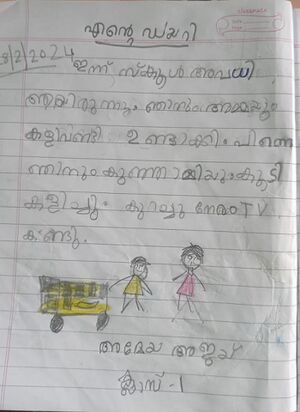 എന്റെ ഡയറി
8/2/2024 ഇന്ന് സ്കൂൾ അവധി
ആയിരുന്നു. ഞാനും അമ്മയും
കളിവണ്ടി ഉണ്ടാക്കി. പിന്നെ
ഞാനും കുഞ്ഞാമിയും കൂടി
കളിച്ചു. കുറച്ചു നേരം TV
കണ്ടു.
അമേയ അജയ്
ക്ലാസ് - 1